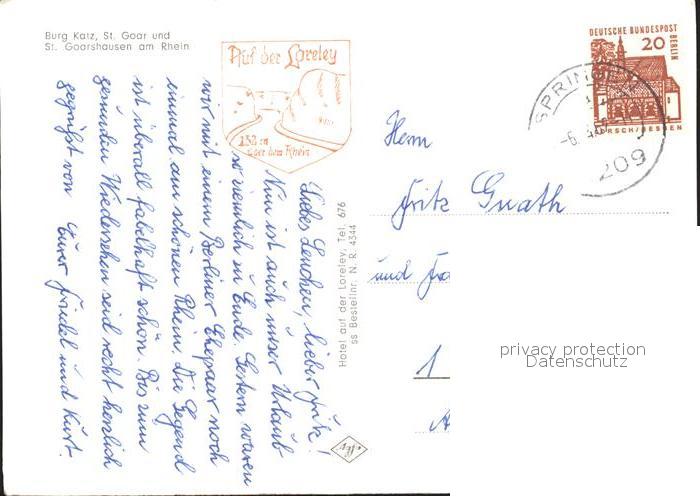 Burg Katz, St. Goar und
St. Goarshausen am Rhein
Auf der Loreley
132 m
über dem Rhein
DEUTSCHE BUNDESPOST
BERLIN
20
LORSCH/HESSEN
SPRINGE
209
Liebes Lenchen, lieber Fritz!
Nun ist auch unser Urlaub
so ziemlich zu Ende. Gestern waren
wir mit einem Berliner Ehepaar noch
einmal am schönen Rhein. Die Gegend
ist überall fabelhaft schön. Bis zum
gesunden Wiedersehen seid recht herzlich
gegrüßt von Eurer Friedel und Kurt.
Hotel auf der Loreley, Tel. 676
ss Bestellnr. N. R. 4344
Herrn
Fritz Gnath
und
1
privacy protection
Datenschutz